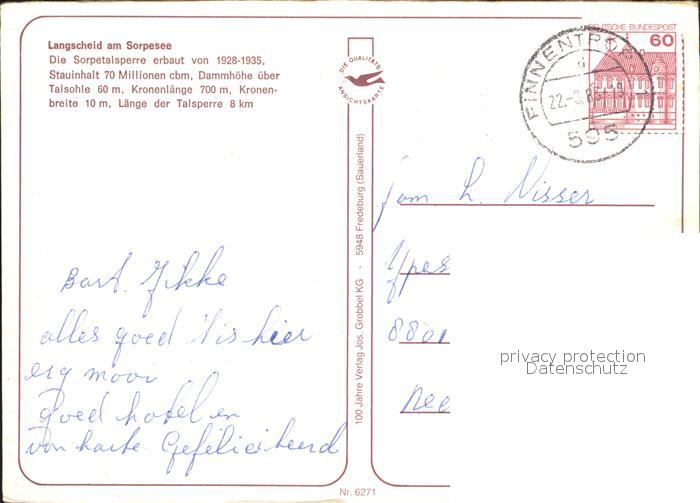 Langscheid am Sorpesee
Die Sorpetalsperre erbaut von 1928-1935,
Stauinhalt 70 Millionen cbm, Dammhöhe über
Talsohle 60 m, Kronenlänge 700 m, Kronen-
breite 10 m, Länge der Talsperre 8 km
DIE QUALITÄTS
ANSICHTSKARTE
DEUTSCHE BUNDESPOST
60
FINNENTROP
595
100 Jahre Verlag Jos. Grobbel KG - 5948 Fredeburg (Sauerland)
Fam L. Visser
8801
Bart.
alles goed 't is hier
erg mooi
goed hotel en
van harte Gefeliciteerd
privacy protection
Datenschutz
Nr. 6271